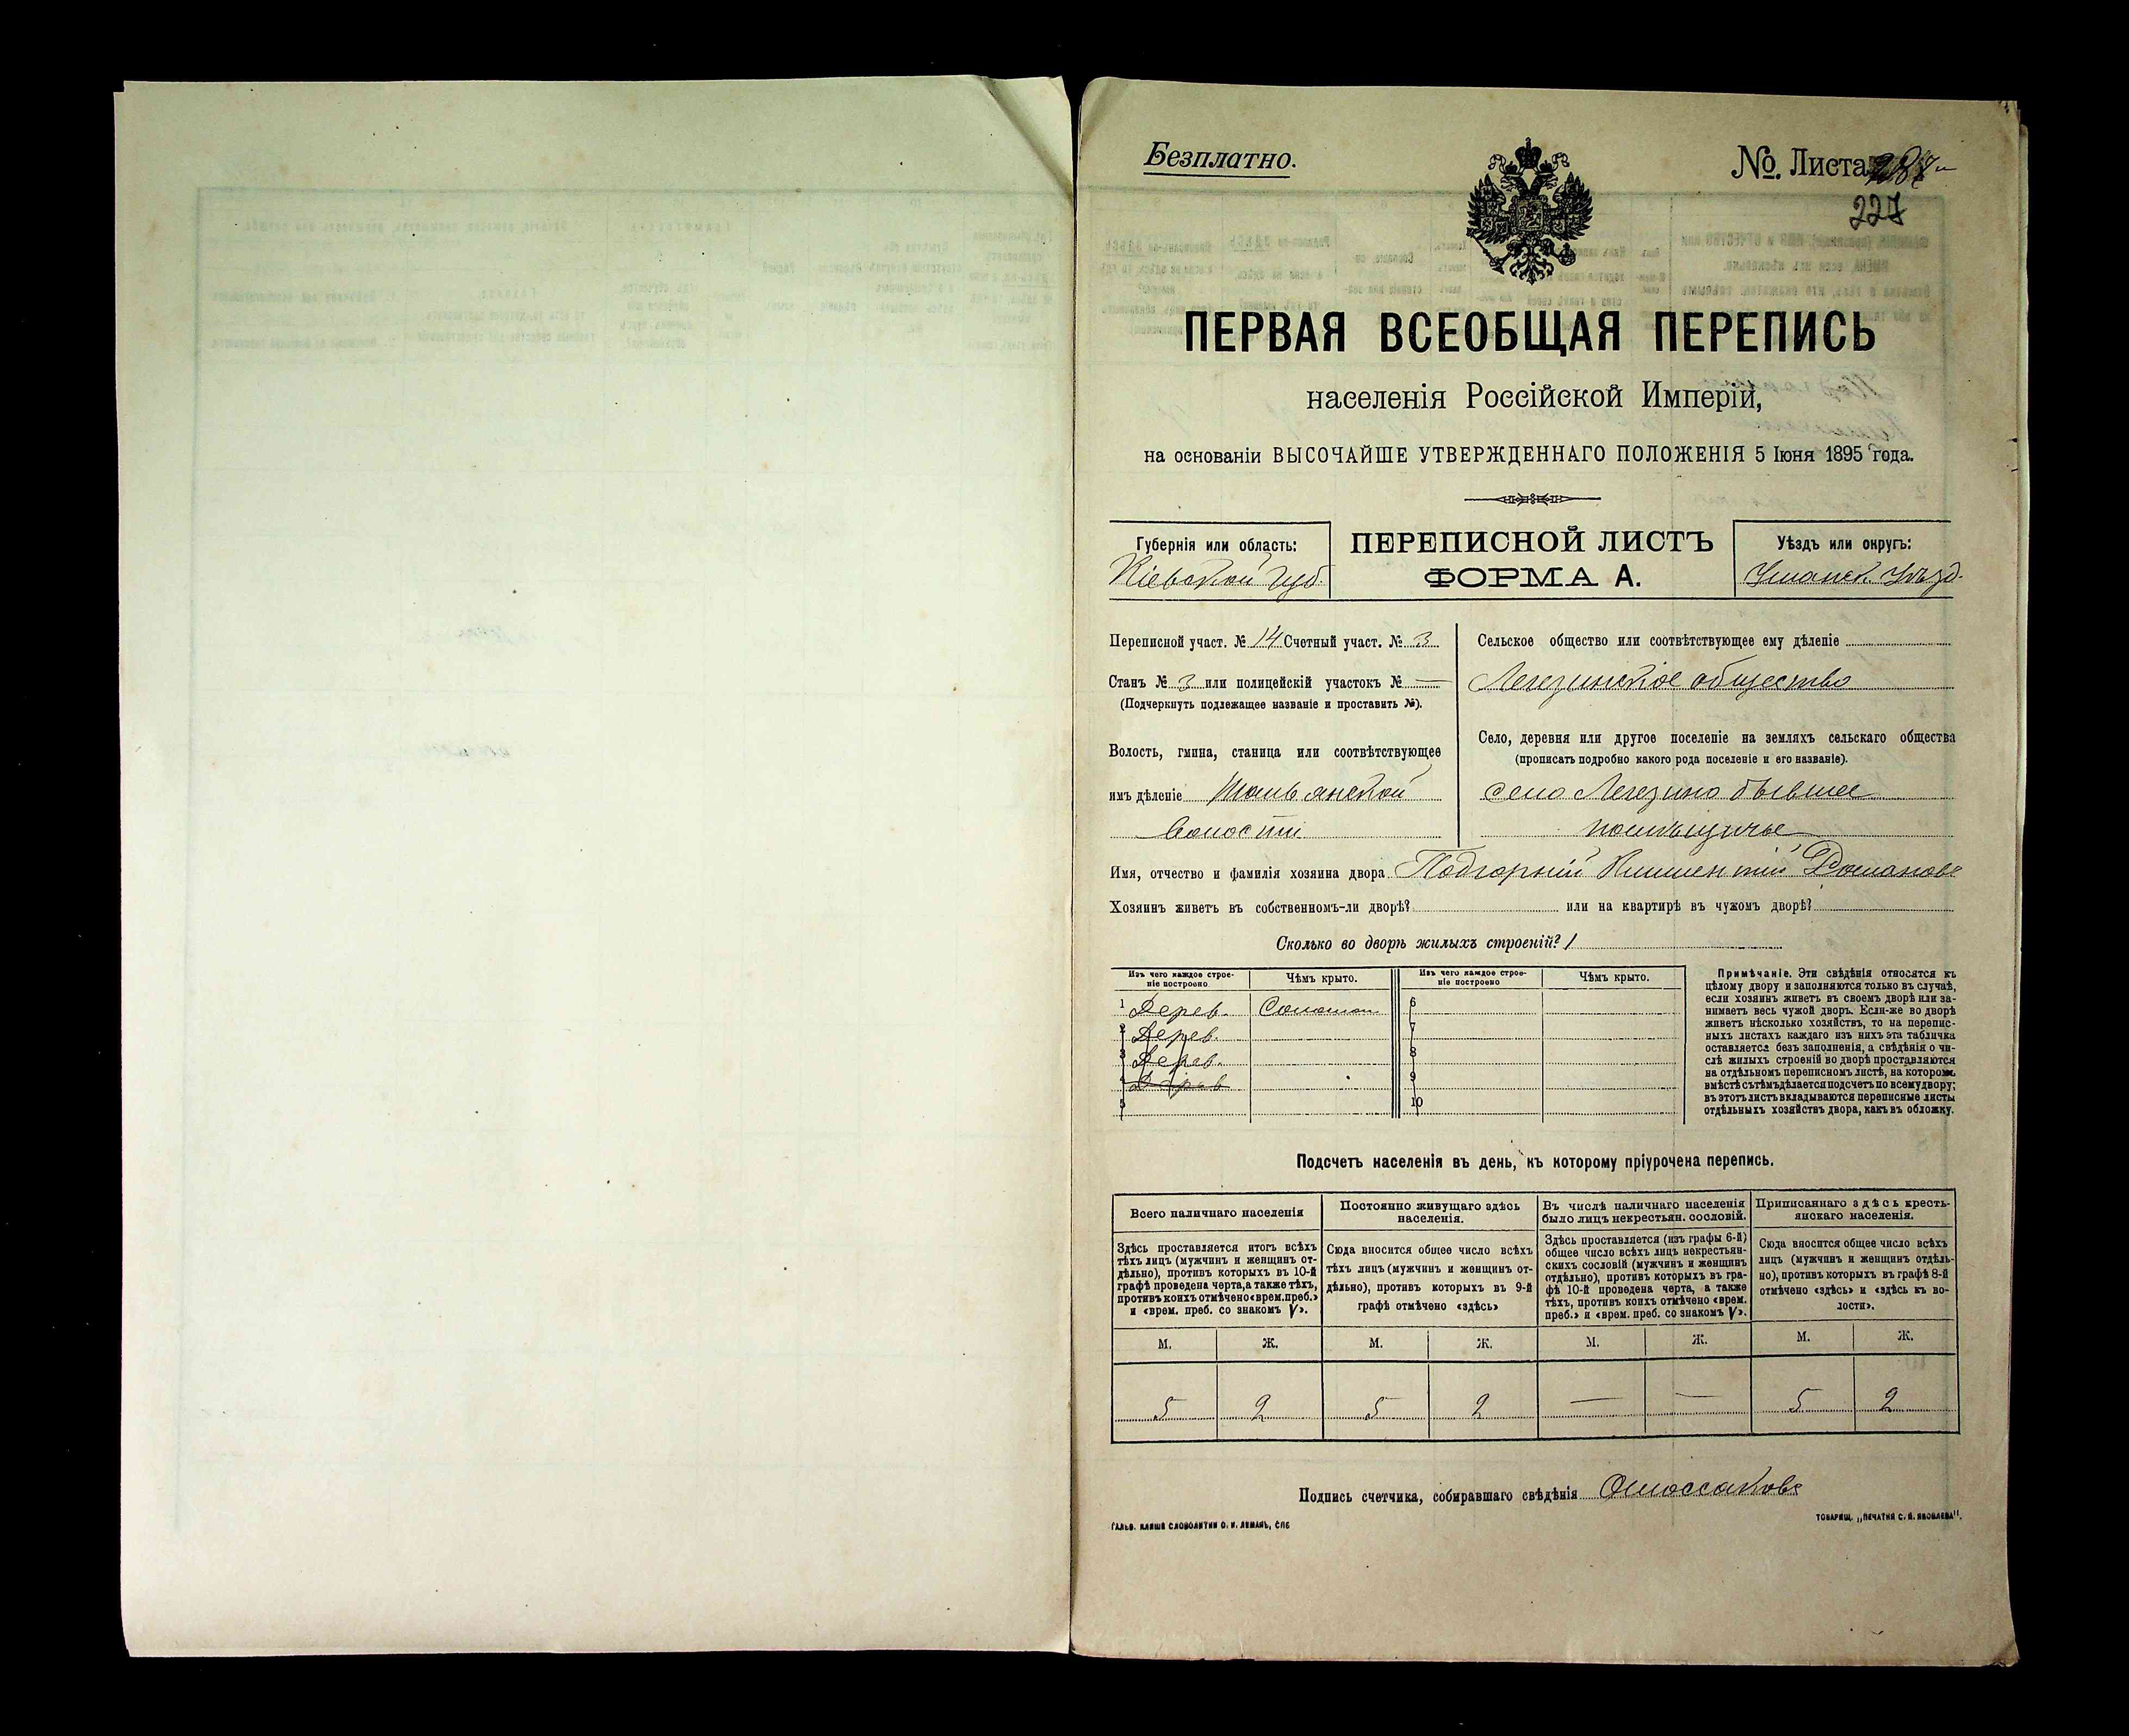 Безплатно.
№. Листа
227
ПЕРВАЯ ВСЕОБЩАЯ ПЕРЕПИСЬ
населенія Россійской Имперіи,
на основаніи ВЫСОЧАЙШЕ УТВЕРЖДЕННАГО ПОЛОЖЕНІЯ 5 Іюня 1895 года.
Губернія или область:
Кіевской Губ.
ПЕРЕПИСНОЙ ЛИСТЪ
ФОРМА А.
Уѣздъ или округъ:
Уманск. Уѣзд.
Переписной участ. № 14 Счетный участ. № 3
Станъ № 3 или полицейскій участокъ № —
(Подчеркнуть подлежащее названіе и проставить №).
Волость, гмина, станица или соотвѣтствующее
имъ дѣленіе Тальянской
Волости
Сельское общество или соотвѣтствующее ему дѣленіе
Легезинское общество
Село, деревня или другое поселеніе на земляхъ сельскаго общества
(прописать подробно какого рода поселеніе и его названіе).
село Легезино бывшее
помѣщичье
Имя, отчество и фамилія хозяина двора Подгорній Климентій Романовъ
Хозяинъ живетъ въ собственномъ-ли дворѣ? или на квартирѣ въ чужомъ дворѣ?
Сколько во дворѣ жилыхъ строеній? 1
Изъ чего каждое строе-
ніе построено
Чѣмъ крыто.
Изъ чего каждое строе-
ніе построено
Чѣмъ крыто.
1 Дерев. Солом 6
2 Дерев. 7
3 Дерев. 8
4 Дерев 9
5 10
Примѣчаніе. Эти свѣдѣнія относятся къ
цѣлому двору и заполняются только въ случаѣ,
если хозяинъ живетъ въ своемъ дворѣ или за-
нимаетъ весь чужой дворъ. Если-же во дворѣ
живетъ нѣсколько хозяйствъ, то на перепис-
ныхъ листахъ каждаго изъ нихъ эта табличка
оставляется безъ заполненія, а свѣдѣнія о чи-
слѣ жилыхъ строеній во дворѣ проставляются
на отдѣльномъ переписномъ листѣ, на которомъ
вмѣстѣ съ тѣмъ дѣлается подсчетъ по всему двору;
въ этотъ листъ вкладываются переписные листы
отдѣльныхъ хозяйствъ двора, какъ въ обложку.
Подсчетъ населенія въ день, къ которому пріурочена перепись.
Всего наличнаго населенія
Здѣсь проставляется итогъ всѣхъ
тѣхъ лицъ (мужчинъ и женщинъ от-
дѣльно), противъ которыхъ въ 10-й
графѣ проведена черта, а также тѣхъ,
противъ коихъ отмѣчено «врем. преб.»
и «врем. преб. со знакомъ V».
Постоянно живущаго здѣсь
населенія.
Сюда вносится общее число всѣхъ
тѣхъ лицъ (мужчинъ и женщинъ от-
дѣльно), противъ которыхъ въ 9-й
графѣ отмѣчено «здѣсь»
Въ числѣ наличнаго населенія
было лицъ некрестьян. сословій.
Здѣсь проставляется (изъ графы 6-й)
общее число всѣхъ лицъ некрестьян-
скихъ сословій (мужчинъ и женщинъ
отдѣльно), противъ которыхъ въ гра-
фѣ 10-й проведена черта, а также
тѣхъ, противъ коихъ отмѣчено «врем.
преб.» и «врем. преб. со знакомъ V».
Приписаннаго здѣсь кресть-
янскаго населенія.
Сюда вносится общее число всѣхъ
лицъ (мужчинъ и женщинъ отдѣль-
но), противъ которыхъ въ графѣ 8-й
отмѣчено «здѣсь» и «здѣсь къ во-
лости».
М. Ж. М. Ж. М. Ж. М. Ж.
5 2 5 2 — — 5 2
Подпись счетчика, собиравшаго свѣдѣнія
ГАЛЬВ. КЛИШЕ СЛОВОЛИТНИ О. И. ЛЕМАНЪ, СПБ
ТОВАРИЩ. „ПЕЧАТНЯ С. П. ЯКОВЛЕВА".